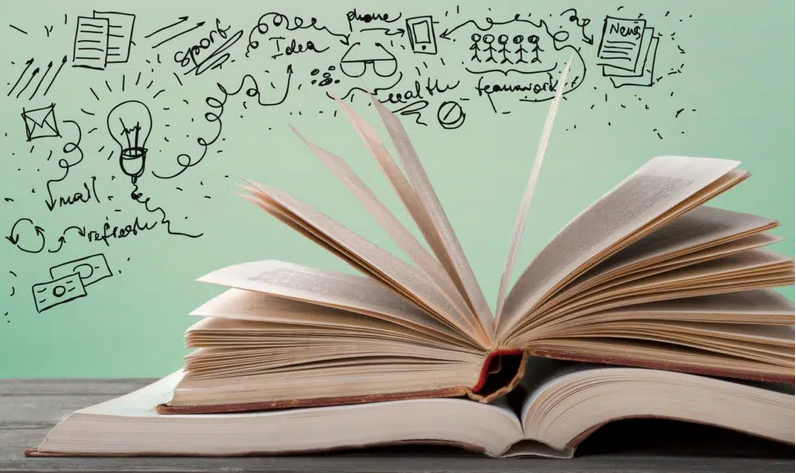 sport
Idea
phone
News
health
teamwork
mail
refresh